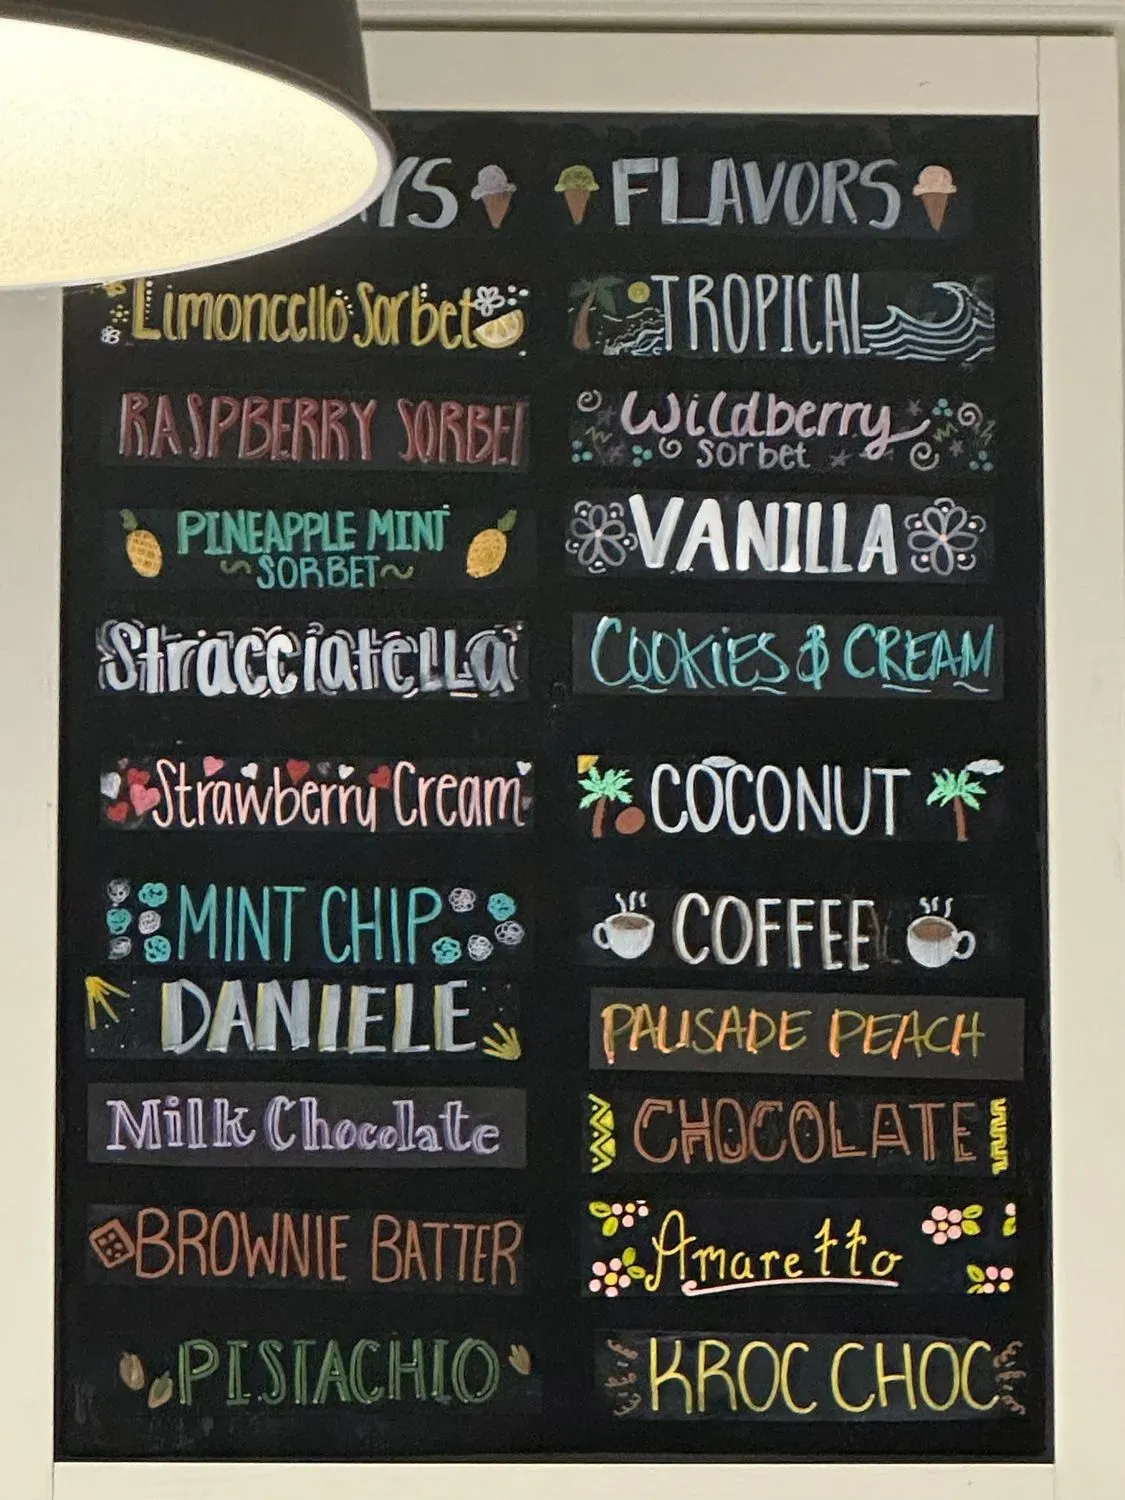 YS FLAVORS
Limoncello Sorbet
RASPBERRY SORBET
PINEAPPLE MINT
SORBET
Stracciatella
Strawberry Cream
MINT CHIP
DANIELE
Milk Chocolate
BROWNIE BATTER
PISTACHIO
TROPICAL
Wildberry
sorbet
VANILLA
COOKIES & CREAM
COCONUT
COFFEE
PALISADE PEACH
CHOCOLATE
Amaretto
KROC CHOC